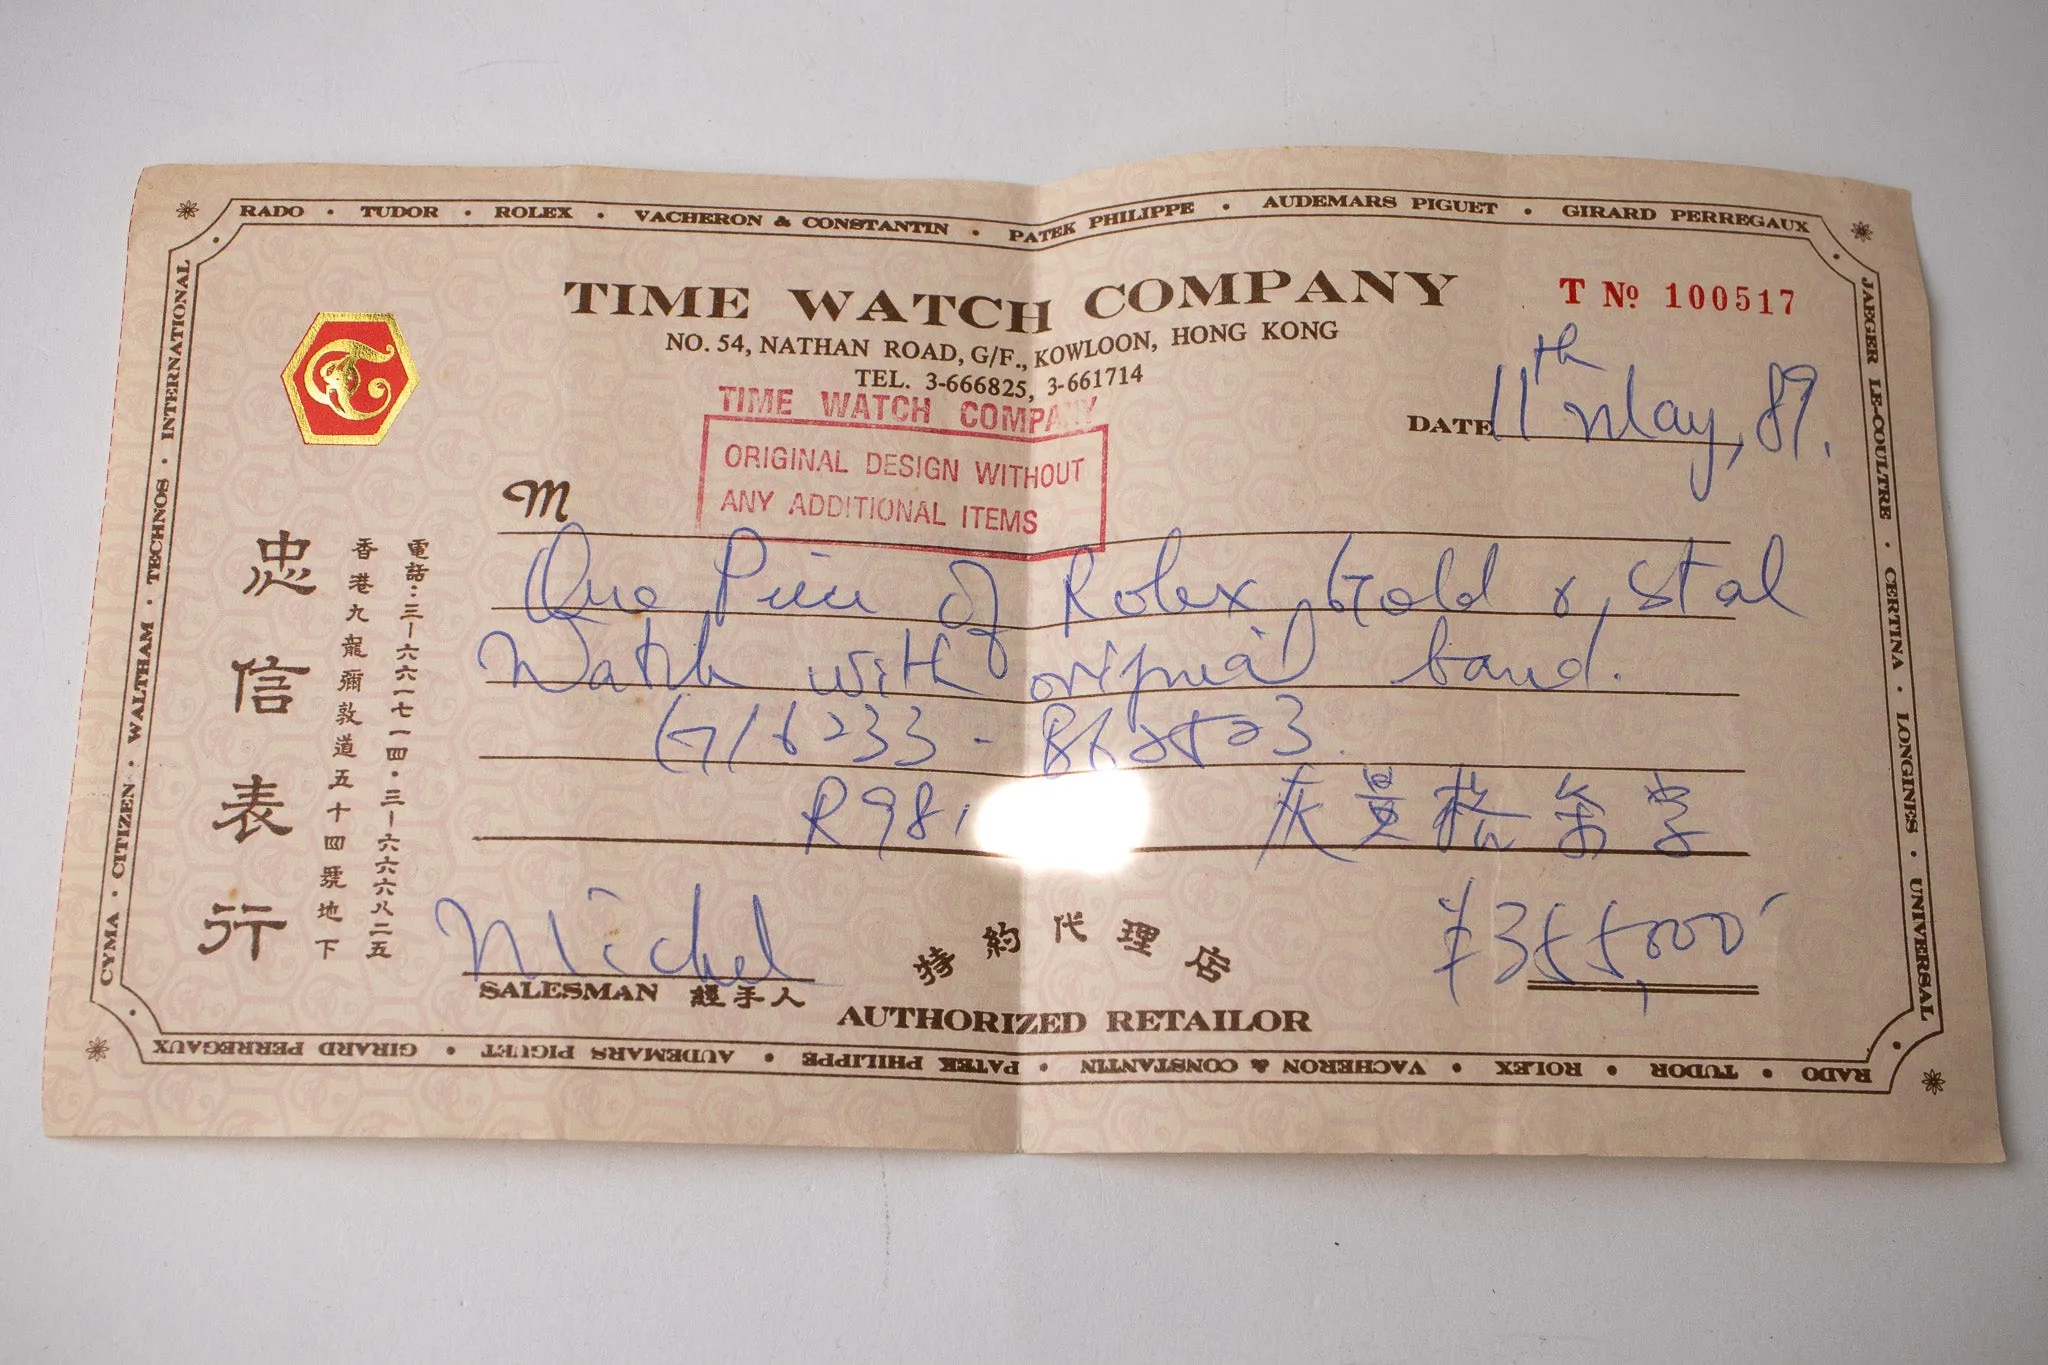 RADO • TUDOR • ROLEX • VACHERON & CONSTANTIN • PATEK PHILIPPE • AUDEMARS PIGUET • GIRARD PERREGAUX
JAEGER LE-COULTRE • CERTINA • LONGINES • UNIVERSAL
CYMA • CITIZEN • WALTHAM • TECHNOS • INTERNATIONAL
TIME WATCH COMPANY
NO. 54, NATHAN ROAD, G/F., KOWLOON, HONG KONG
TEL. 3-666825, 3-661714
T Nº 100517
DATE 11th May, 89.
TIME WATCH COMPANY
ORIGINAL DESIGN WITHOUT
ANY ADDITIONAL ITEMS
M
忠信表行
香港九龍彌敦道五十四號地下
電話:三—六六一七一四•三—六六六八二五
One Piece of Rolex Gold & Steel
Watch with original band.
16233 -
R98,
¥355,000
Michel
SALESMAN 經手人
特約代理店
AUTHORIZED RETAILOR
RADO • TUDOR • ROLEX • VACHERON & CONSTANTIN • PATEK PHILIPPE • AUDEMARS PIGUET • GIRARD PERREGAUX